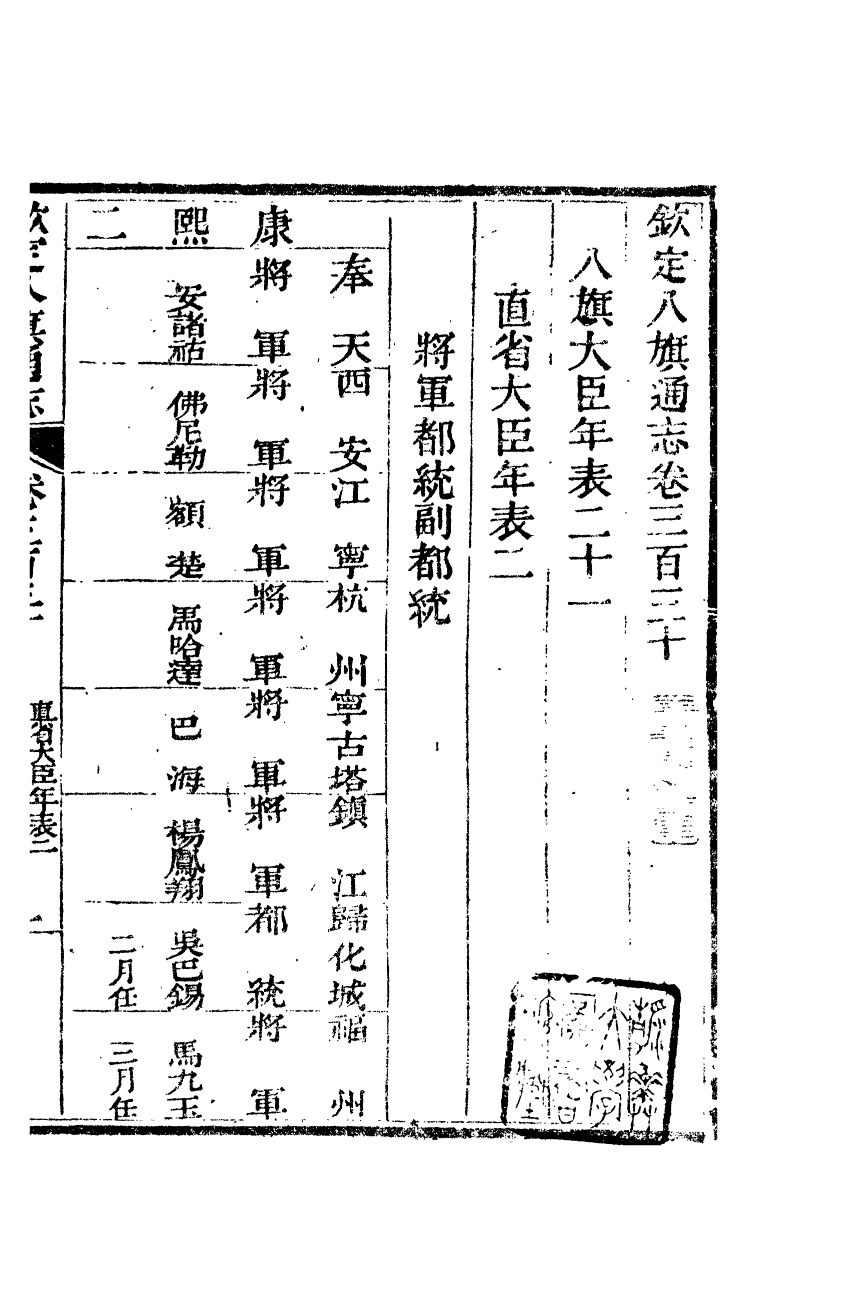 欽定八旗通志卷三百三十
八旗大臣年表二十一
直省大臣年表二
將軍都統副都統
奉天 西安 江寧 杭州 寧古塔 鎮江 歸化城 福州
康 將軍 將軍 將軍 將軍 將軍 將軍 都統 將軍
熙 安諸祜 佛尼勒 額楚 馬哈達 巴海 楊鳳翔 吳巴錫 馬九玉
二 二月任 三月任
直省大臣年表二